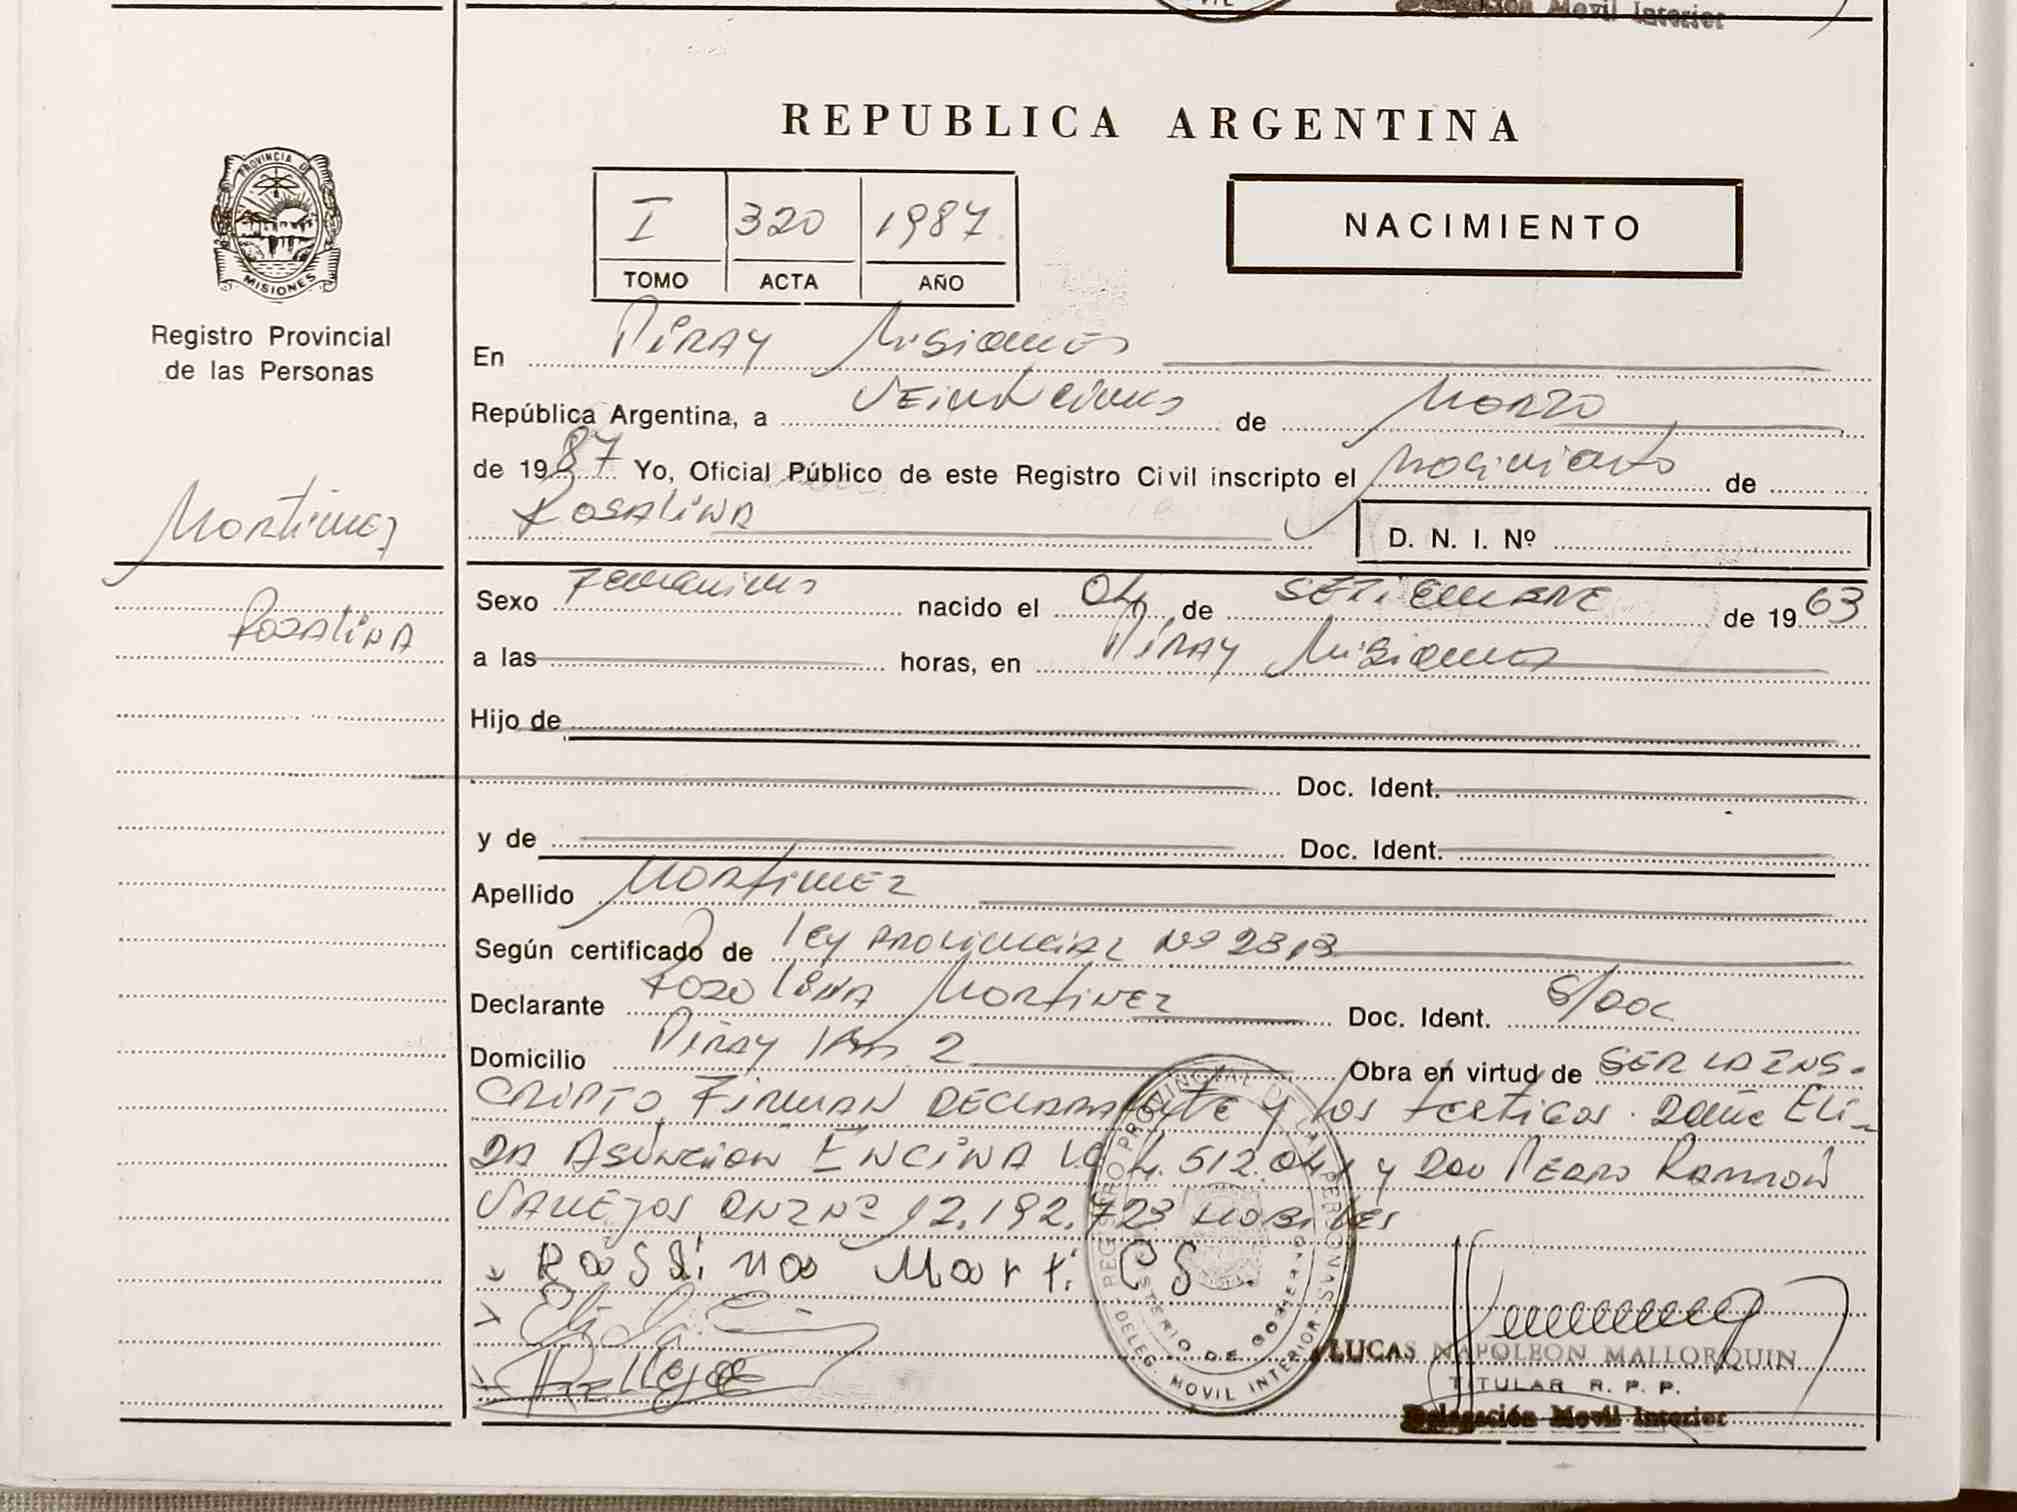 Delegación Movil Interior
REPUBLICA ARGENTINA
PROVINCIA DE
MISIONES
Registro Provincial
de las Personas
I 320 1987
TOMO ACTA AÑO
NACIMIENTO
En Piray Misiones
República Argentina, a Veinticinco de Marzo
de 1987 Yo, Oficial Público de este Registro Civil inscripto el Nacimiento de
Rosalina
D. N. I. Nº
Martinez
Rosalina
Sexo Femenino nacido el 04 de SETIEMBRE de 1963
a las horas, en Piray Misiones
Hijo de
Doc. Ident.
y de Doc. Ident.
Apellido Martinez
Según certificado de ley provincial Nº 2313
Declarante Rosalina Martinez Doc. Ident. S/DOC
Domicilio Piray Km 2 Obra en virtud de SER LA INS-
CRIPTO FIRMAN DECLARANTE y los testigos Doña Eli-
DA Asuncion ENCINA L.C 4.512.041 y Don Pedro Ramón
Vallejos DNI Nº 12.192.723 HABILES
Rossina Marti
REGISTRO PROVINCIAL DE LAS PERSONAS
MINISTERIO DE GOBIERNO
DELEG. MOVIL INTERIOR
LUCAS NAPOLEON MALLORQUIN
TITULAR R. P. P.
Delegación Movil Interior